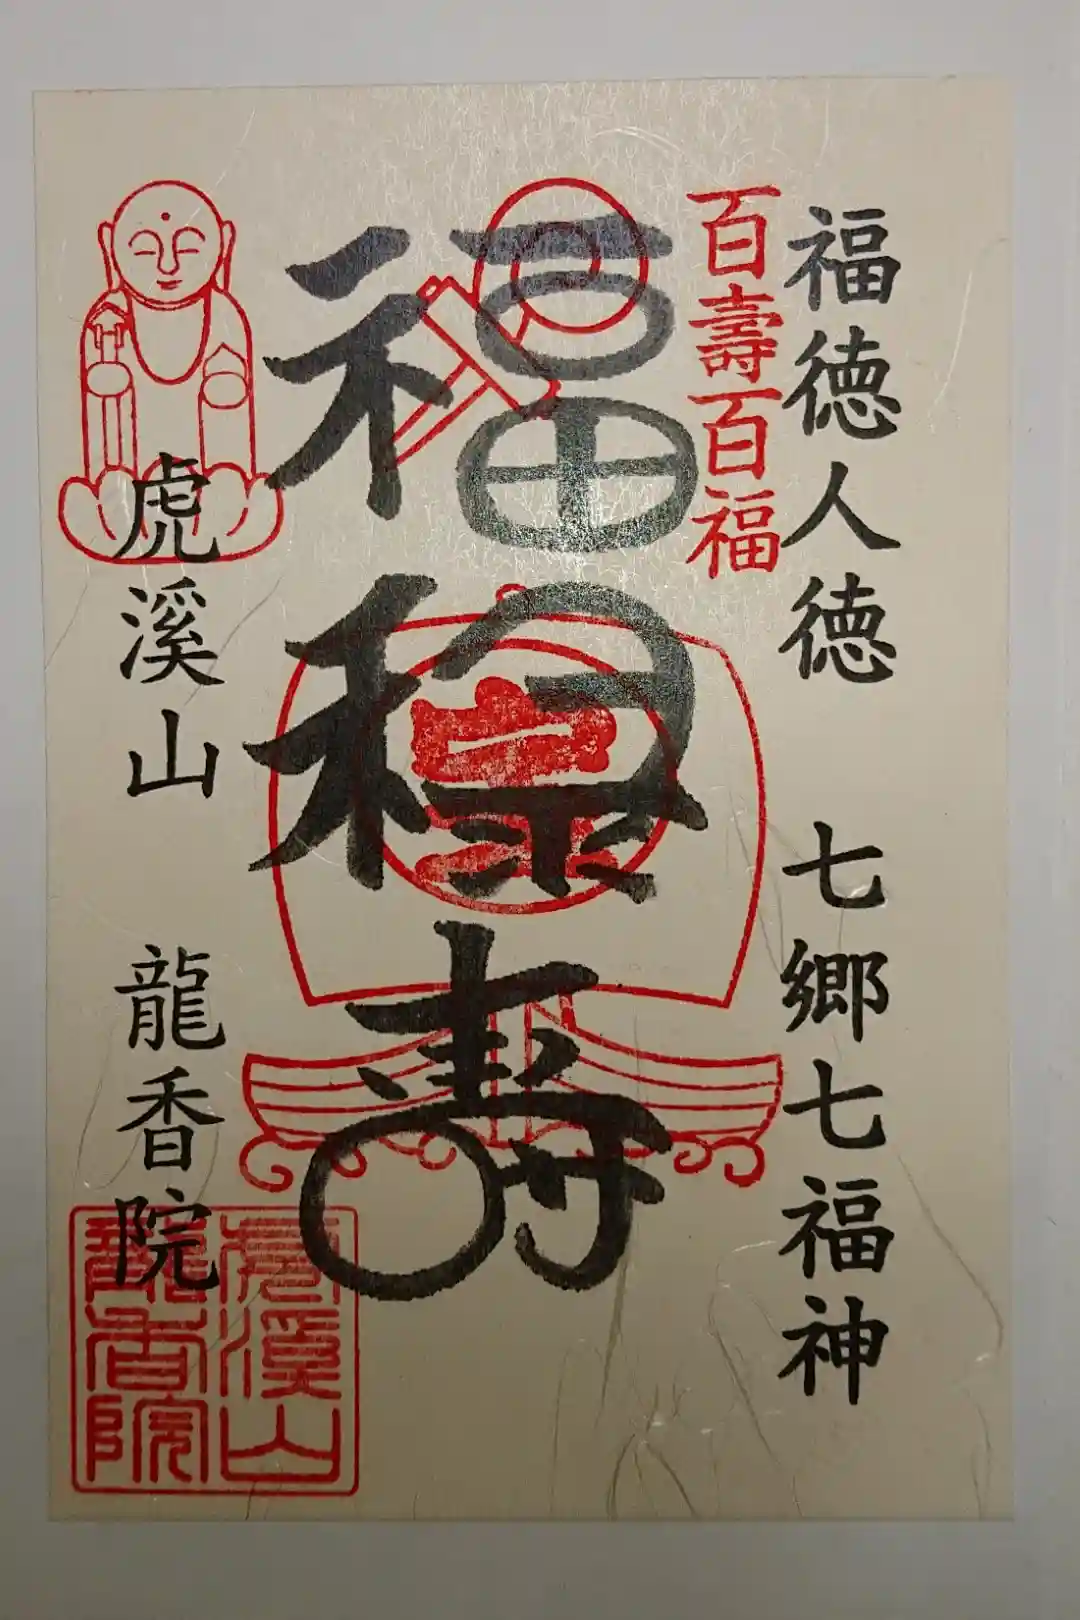 福徳人徳 七郷七福神
百壽百福
福禄寿
虎溪山 龍香院
虎溪山
龍香院